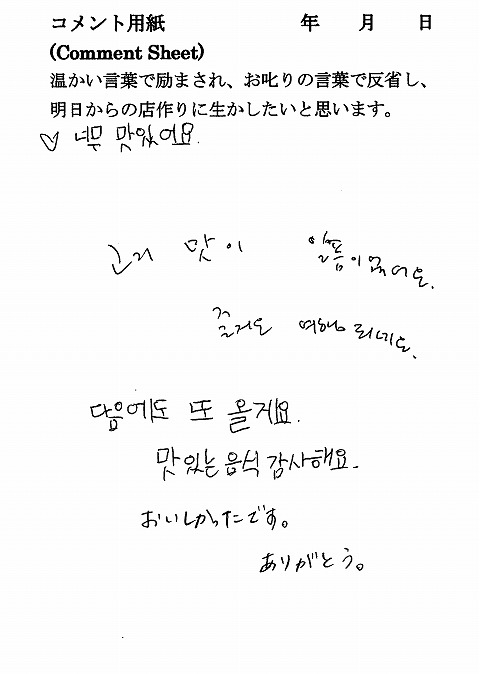 コメント用紙 年 月 日
(Comment Sheet)
温かい言葉で励まされ、お叱りの言葉で反省し、
明日からの店作りに生かしたいと思います。
♡ 너무 맛있어요.
맛이 일품이네요.
즐거운 여행 되네요.
다음에도 또 올게요.
맛있는 음식 감사해요.
おいしかったです。
ありがとう。